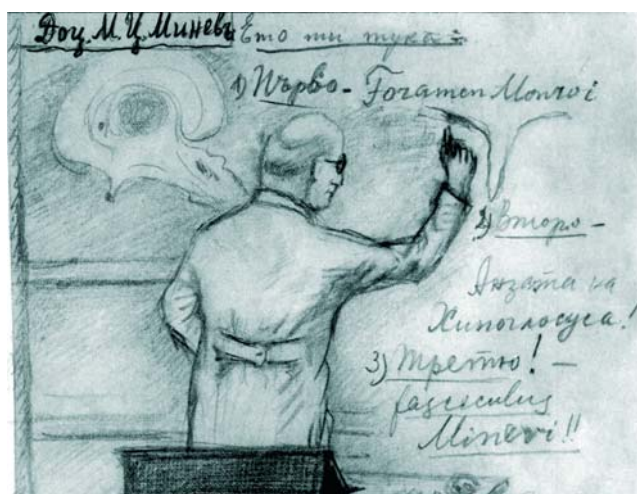 Доц. М. Ц. Миневъ Ето ти тука =
1) Първо - Foramen Monroi
2) Второ -
Анзата на
Хипоглосуса!
3) Третьо! -
fasciculus
Minevi!!